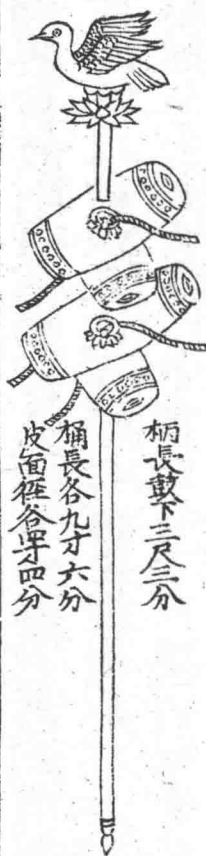 柄長鼓下三尺三分
桶長各九寸六分
皮面徑各四寸四分